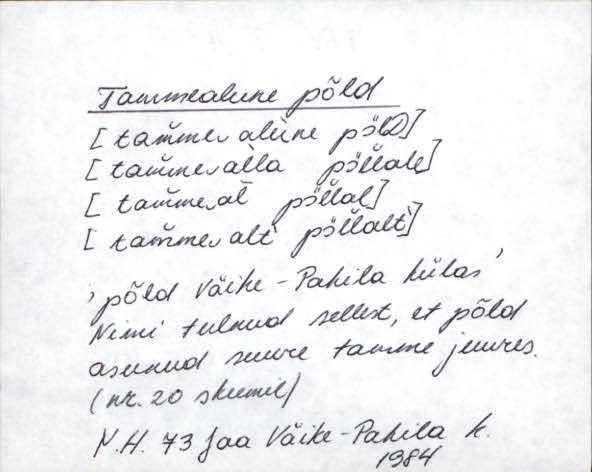 Tammealune põld
[tam̆me‿alune pöl̆D]
[tam̆me‿al̆la pöl̆lale]
[tam̆me‿al̆ pöl̆lal]
[tam̆me‿alt̀ pöl̆lalt̀]
'põld Väike-Pahila külas'
Nimi tulnud sellest, et põld
asunud suure tamme juures.
(nr. 20 skeemil)
N.H. 73 Jaa Väike-Pahila k.
1984